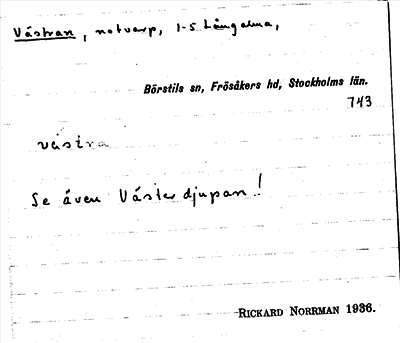 Västran, notvarp, 1-5 Långalma,
Börstils sn, Frösåkers hd, Stockholms län.
743
västra
Se även Västerdjupan!
RICKARD NORRMAN 1936.